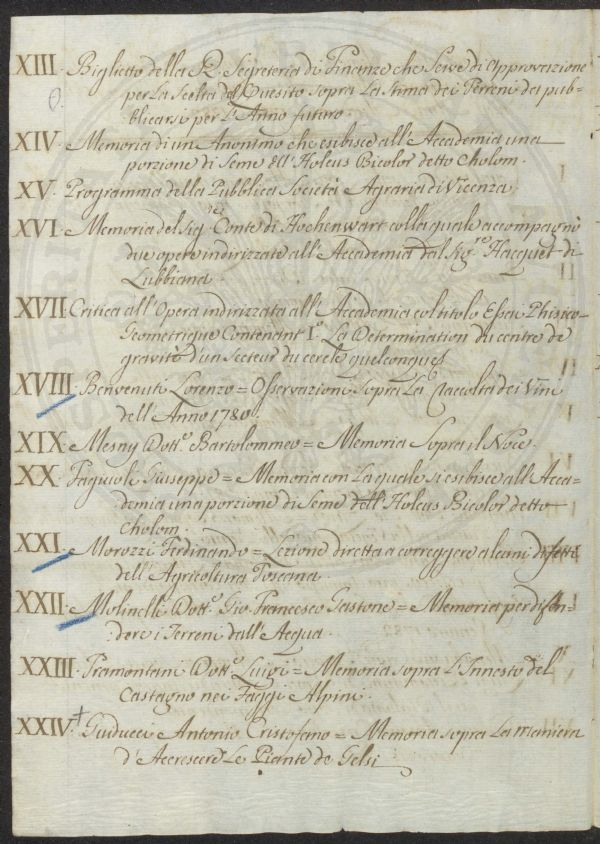 XIII. Biglietto della R. Segreteria di Finanze che Serve di approvazione
per La Scelta del Quesito sopra La Stima dei Terreni da pub-
blicarsi per L'Anno futuro.
XIV. Memoria di un Anonimo che esibisce all'Accademia una
porzione di Seme dell'Holcus Bicolor detto Cholom.
XV. Programma della Pubblica Società Agraria di Vicenza.
XVI. Memoria del Sig.r Conte di Hochenwart colla quale accompagnò
due opere indirizzate all'Accademia dal Sig.re Hacquet di
Lubbiana.
XVII. Critica all'Opera indirizzata all'Accademia col titolo Essai Phisico-
Geometrique Contenant I.o La Determination du centre de
gravité d'un Secteur du cercle quelconques
XVIII. Benvenuti Lorenzo = Osservazioni sopra La Raccolta dei Vini
dell'Anno 1780.
XIX. Mesny Dott.o Bartolommeo = Memoria Sopra il Noce.
XX. Fagiuoli Giuseppe = Memoria con La quale si esibisce all'Acca-
demia una porzione di Seme dell'Holcus Bicolor detto
Cholom.
XXI. Morozzi Ferdinando = Lezione diretta a correggere alcuni difetti
dell'Agricoltura Toscana.
XXII. Molinelli Dott.o Gio. Francesco Gastone = Memoria per difen-
dere i Terreni dall'Acqua.
XXIII. Tramontani Dott.o Luigi = Memoria sopra L'Innesto del
Castagno nei Faggi Alpini.
XXIV. Guiducci Antonio Cristofano = Memoria sopra La maniera
d'Accrescere Le Piante de Gelsi